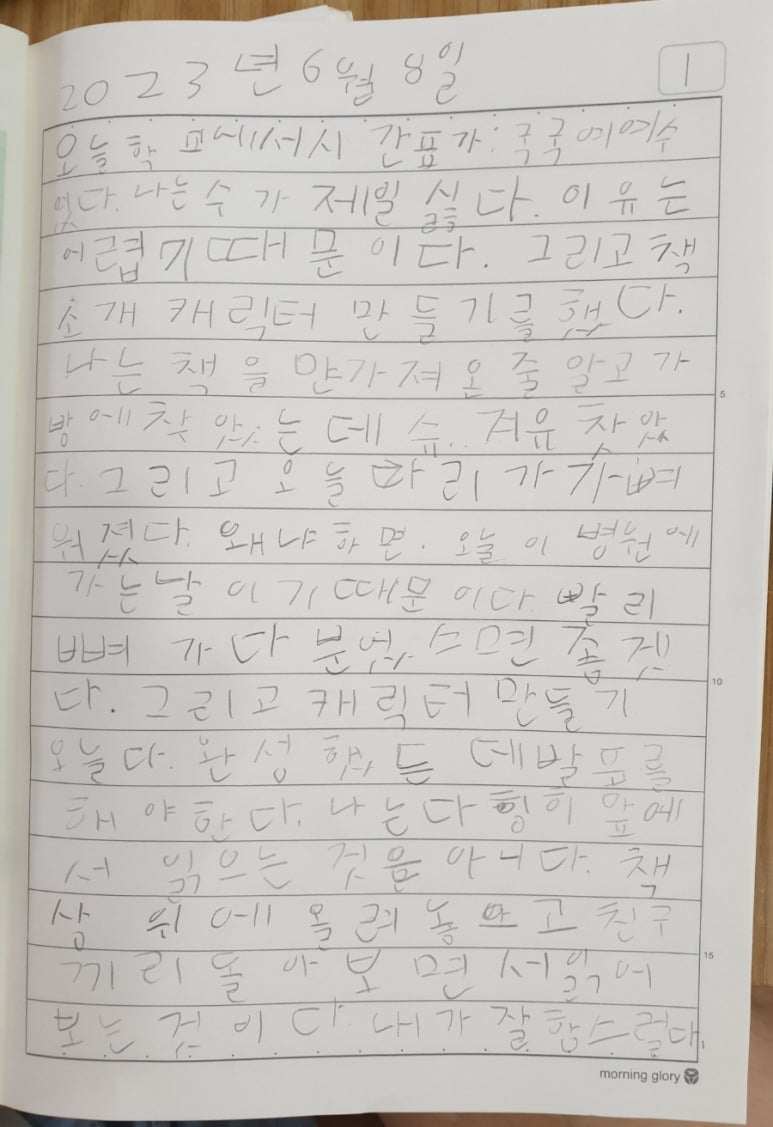 2023년 6월 8일
1
오늘 학교에서 시간표가: 국국예예수
였다. 나는 수가 제일 싫다. 이유는
어렵기때문이다. 그리고 책
소개 캐릭터 만들기를 했다.
나는 책을 안가져온줄 알고 가
5
방에 착았는데 휴.. 겨유 찻았
다. 그리고 오늘 따리가 가벼
워졌다. 왜냐하면. 오늘이 병원에
가는날이기때문이다. 빨리
뼈가 다 분었스면 좀겟
10
다. 그리고 캐릭터 만들기
오늘다. 완성했는데발표를
해야한다. 나는다헹히 앞에
서 읽으는것을아니다. 책
상 위에올려놓으고 친구
끼리돌아보면서읽어
15
보는것이다. 내가잘함스럽다.
morning glory